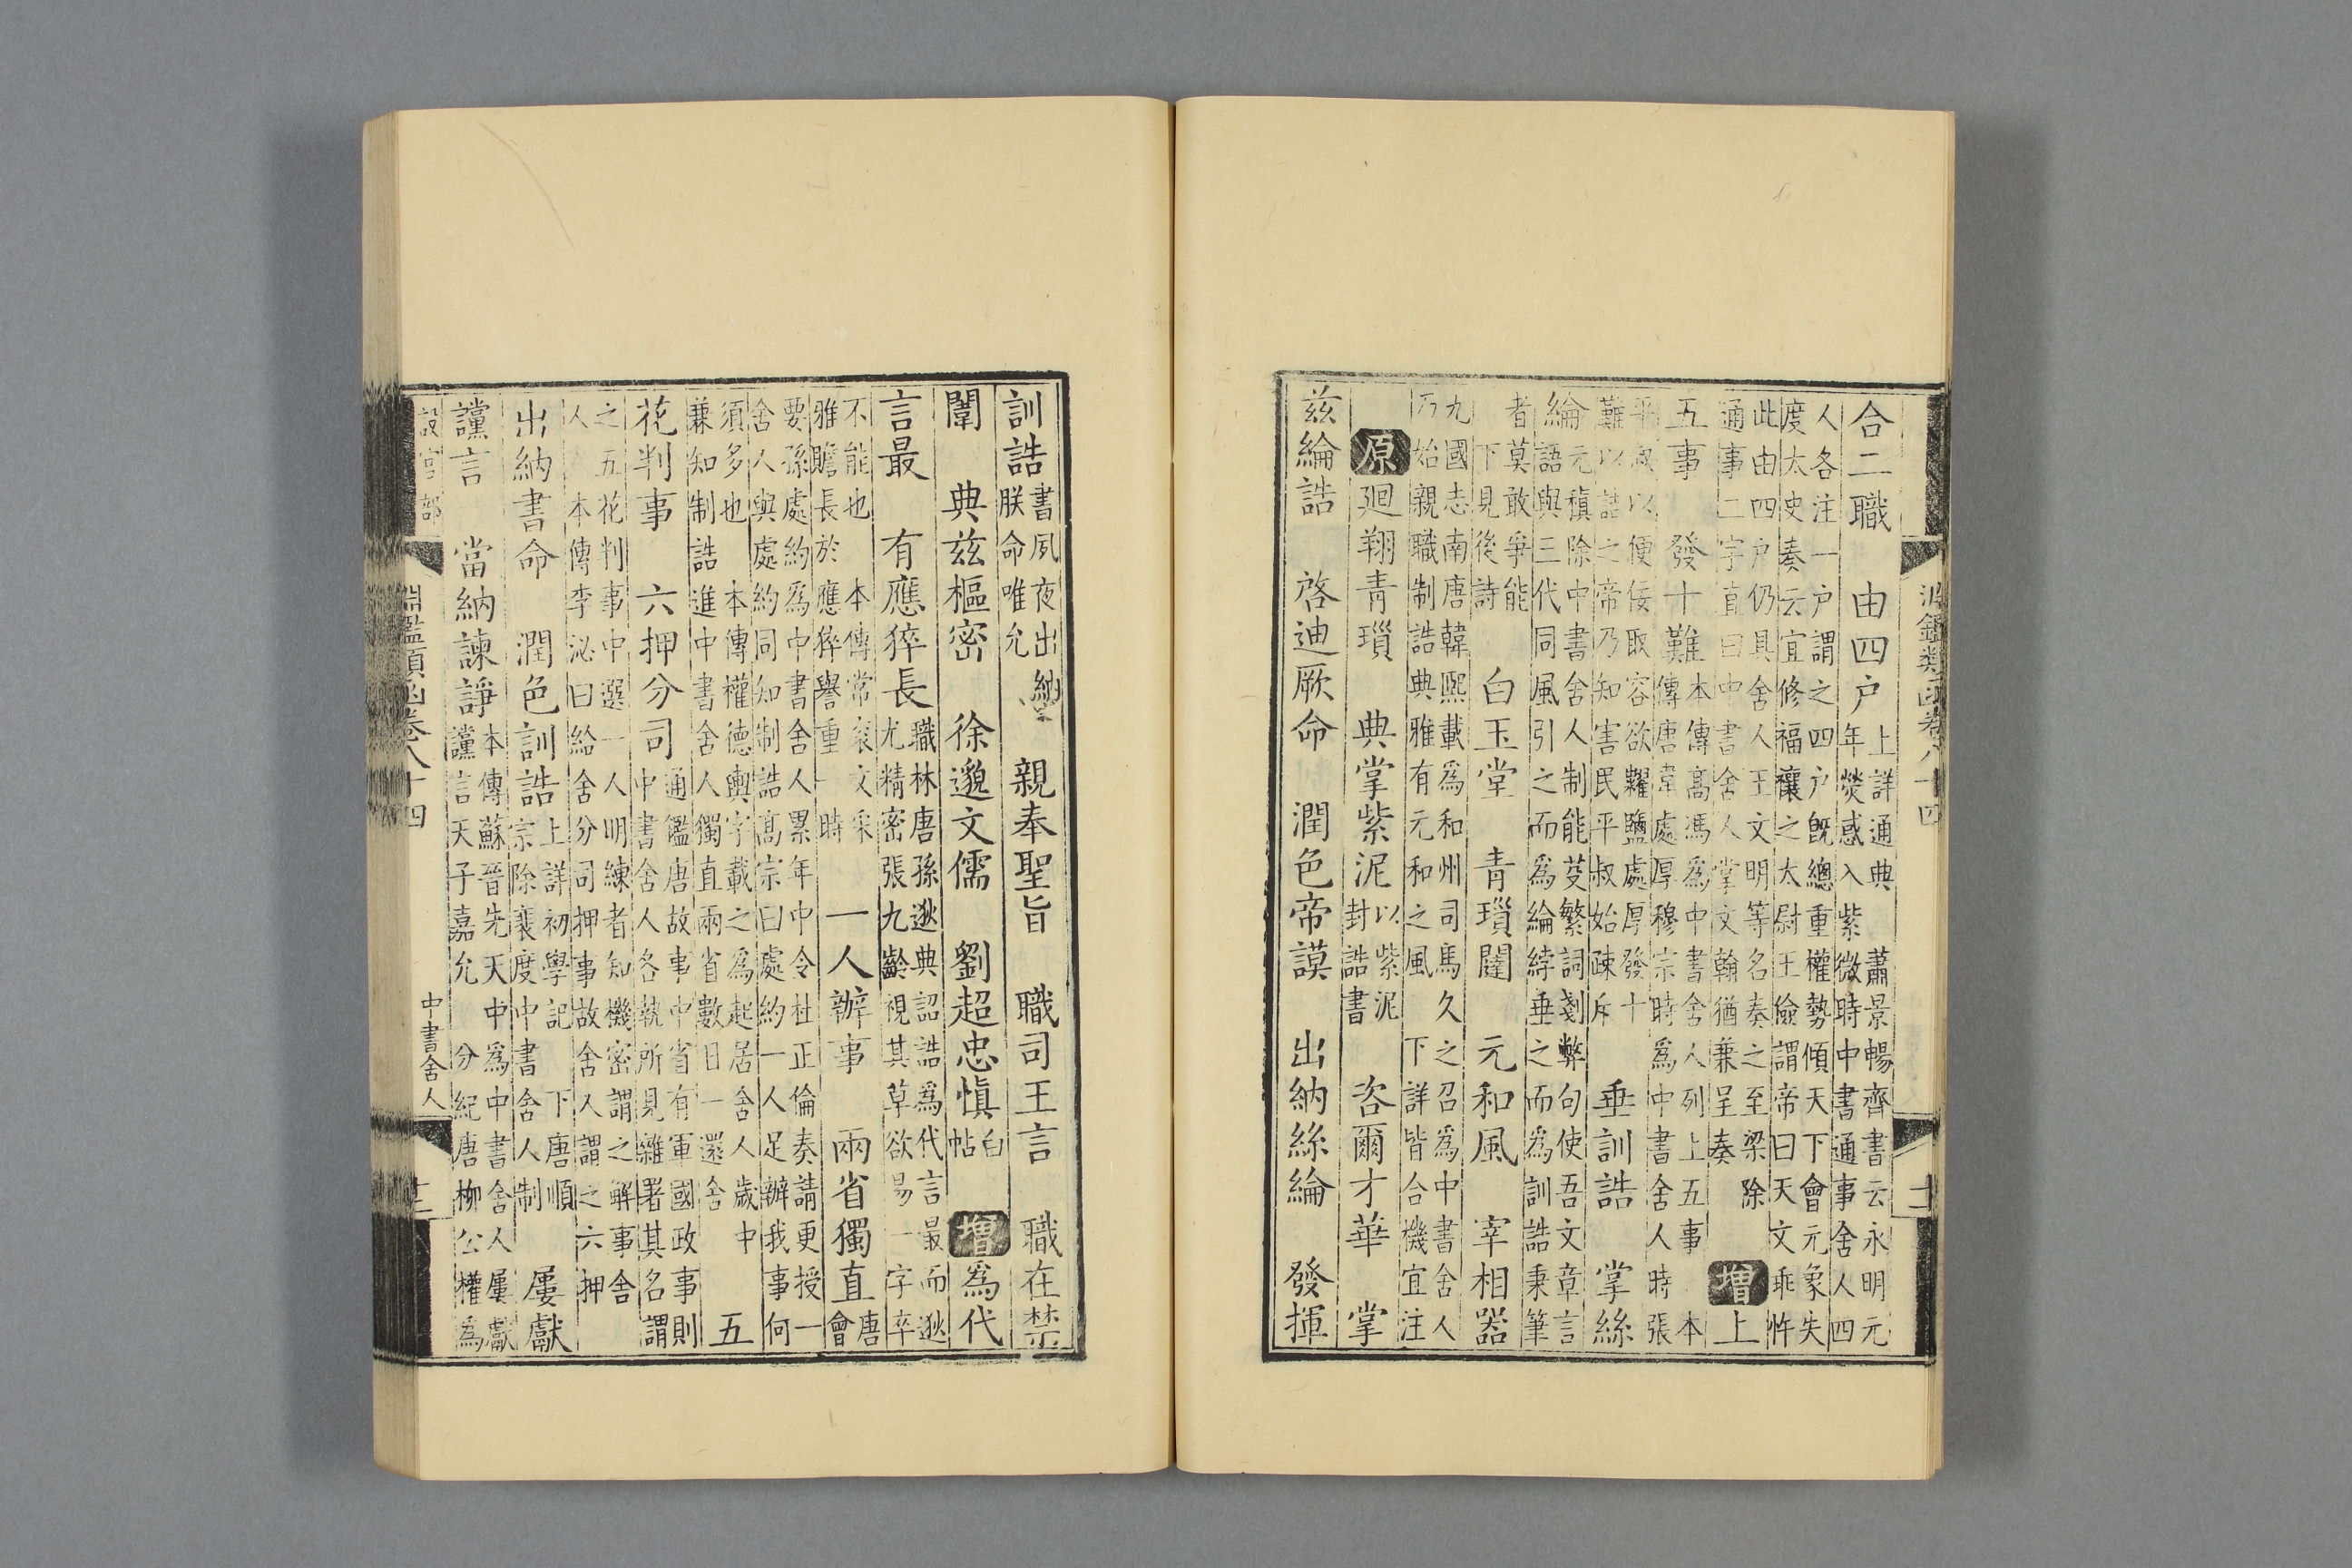 淵鑑類函卷八十四
合二職　由四户
上詳通典　蕭景暢齊書云永明元
年熒惑入紫微時中書通事舍人四
人各注一户謂之四户旣總重權勢傾天下會元象失
度太史奏云宜修福禳之太尉王儉謂帝曰天文乖忤
此由四户仍具舍人王文明等名奏之至梁除
通事二字直曰中書舍人掌文翰猶兼呈奏
增上
五事　發十難
本傳髙馮爲中書舍人列上五事　本
傳唐韋處厚穆宗時爲中書舍人時張
平叔以便佞取容欲糶鹽處厚發十
難以詰之帝乃知害民平叔始疎斥
垂訓誥　掌絲
綸
元稹除中書舍人制能芟繁詞剗弊句使吾文章言
語與三代同風引之而爲綸綍垂之而爲訓誥秉筆
者莫敢爭能
下見後詩
白玉堂　青瑣闥　元和風　宰相器
九國志南唐韓熙載爲和州司馬久之召爲中書舍人
乃始親職制誥典雅有元和之風　下詳皆合機宜注
原廻翔青瑣　典掌紫泥
以紫泥
封誥書
咨爾才華　掌
兹綸誥　啓迪厥命　潤色帝謨　出納絲綸　發揮
訓誥
書夙夜出納
朕命唯允
親奉聖旨　職司王言　職在禁
闈　典兹樞密　徐邈文儒　劉超忠慎
白
帖
增爲代
言最　有應猝長
職林唐孫逖典詔誥爲代言最而逖
尤精密張九齡視其草欲易一字卒
不能也　本傳常衮文采
雅贍長於應猝譽重一時
一人辦事　兩省獨直
唐
會
要孫處約爲中書舍人累年中令杜正倫奏請更授一
舍人與處約同知制誥髙宗曰處約一人足辦我事何
須多也　本傳權德輿字載之爲起居舍人歲中
兼知制誥進中書舍人獨直兩省數日一還舍
五
花判事　六押分司
通鑑唐故事中省有軍國政事則
中書舍人各執所見雜署其名謂
之五花判事中選一人明練者知機密謂之解事舍
人　本傳李泌曰給舍分司押事故舍人謂之六押
出納書命　潤色訓誥
上詳初學記　下唐順
宗除裴度中書舍人制
屢獻
讜言　當納諫諍
本傳蘇晉先天中爲中書舍人屢獻
讜言天子嘉允　分紀唐柳公權爲
設官部
淵鑑類函卷八十四
中書舍人